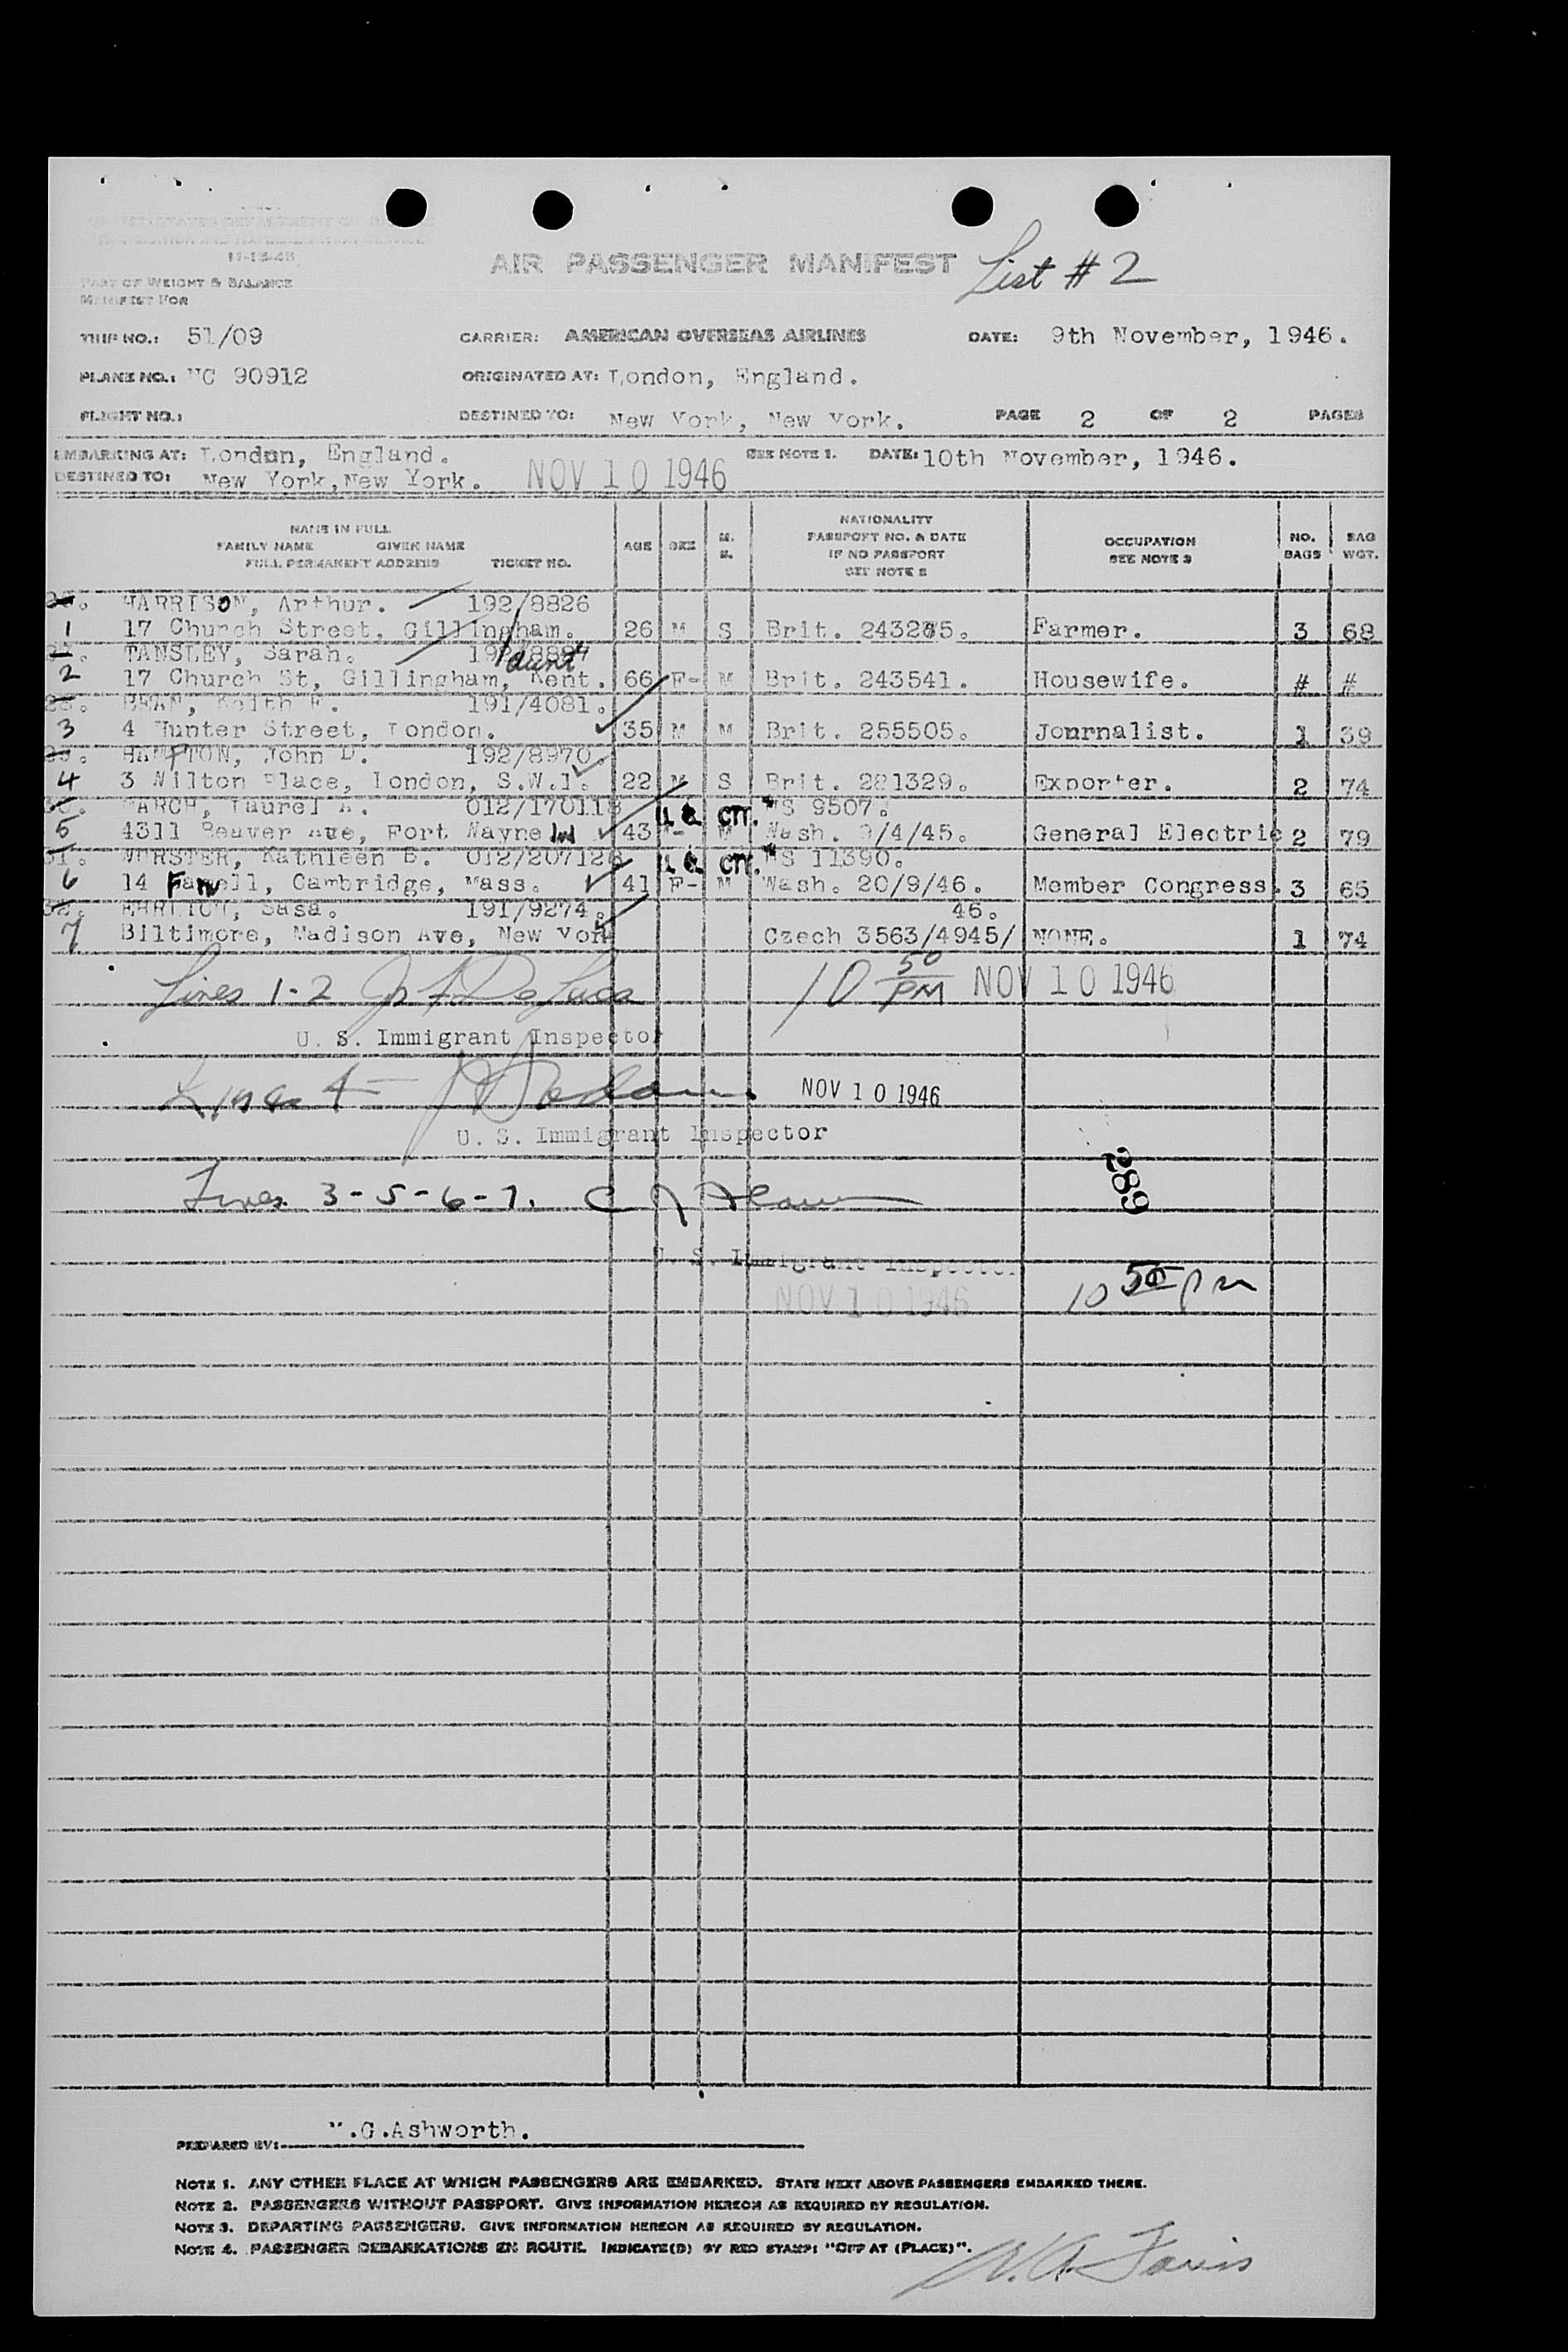 List # 2
AIR PASSENGER MANIFEST
PART OF WEIGHT & BALANCE
MANIFEST FOR
TRIP NO.: 51/09 CARRIER: AMERICAN OVERSEAS AIRLINES DATE: 9th November, 1946.
PLANE NO.: NC 90912 ORIGINATED AT: London, England.
FLIGHT NO.: DESTINED TO: New York, New York. PAGE 2 OF 2 PAGES
EMBARKING AT: London, England. SEE NOTE 1. DATE: 10th November, 1946.
DESTINED TO: New York, New York. NOV 10 1946
NAME IN FULL
FAMILY NAME GIVEN NAME
FULL PERMANENT ADDRESS TICKET NO. AGE SEX M. S. NATIONALITY PASSPORT NO. & DATE IF NO PASSPORT SEE NOTE 2 OCCUPATION SEE NOTE 3 NO. BAGS BAG WGT.
HARRISON, Arthur. 192/8826
1 17 Church Street, Gillingham. 26 M S Brit. 243265. Farmer. 3 68
TANSLEY, Sarah. "aunt"
2 17 Church St, Gillingham, Kent. 66 F M Brit. 243541. Housewife. # #
BEAN, Keith F. 191/4081.
3 4 Hunter Street, London. 35 M M Brit. 255505. Journalist. 1 39
HAMPTON, John D. 192/8970.
4 3 Wilton Place, London, S.W.1. 22 M S Brit. 281329. Exporter. 2 74
MARCH, Laurel A. 012/170118 U.S. CIT. US 9507.
5 4311 Beaver Ave, Fort Wayne Ind 43 M Wash. 9/4/45. General Electric 2 79
WURSTER, Kathleen B. 012/207126 U.S. CIT. US 11390.
6 14 Farwell, Cambridge, Mass. 41 F- M Wash. 20/9/46. Member Congress. 3 65
EHRLICH, Sasa. 191/9274. 46.
7 Biltimore, Madison Ave, New York Czech 3563/4945/ NONE. 1 74
Lines 1-2 10 50 PM NOV 10 1946
U. S. Immigrant Inspector
Line 4 NOV 10 1946
U. S. Immigrant Inspector
289
Lines 3-5-6-7.
U. S. Immigrant Inspector
NOV 10 1946
10 50 pm
PREPARED BY: .G.Ashworth.
NOTE 1. ANY OTHER PLACE AT WHICH PASSENGERS ARE EMBARKED. STATE NEXT ABOVE PASSENGERS EMBARKED THERE.
NOTE 2. PASSENGERS WITHOUT PASSPORT. GIVE INFORMATION HEREON AS REQUIRED BY REGULATION.
NOTE 3. DEPARTING PASSENGERS. GIVE INFORMATION HEREON AS REQUIRED BY REGULATION.
NOTE 4. PASSENGER DEBARKATIONS EN ROUTE. INDICATE(D) BY RED STAMP: "OFF AT (PLACE)".